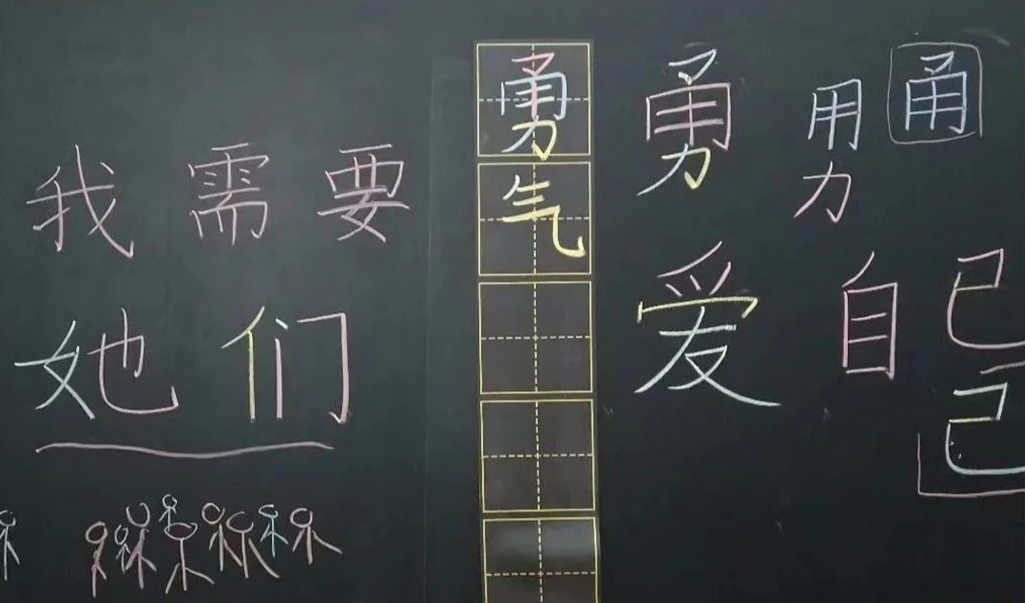 我需要
她们
勇
气
勇 用 甬
力
爱自己
己